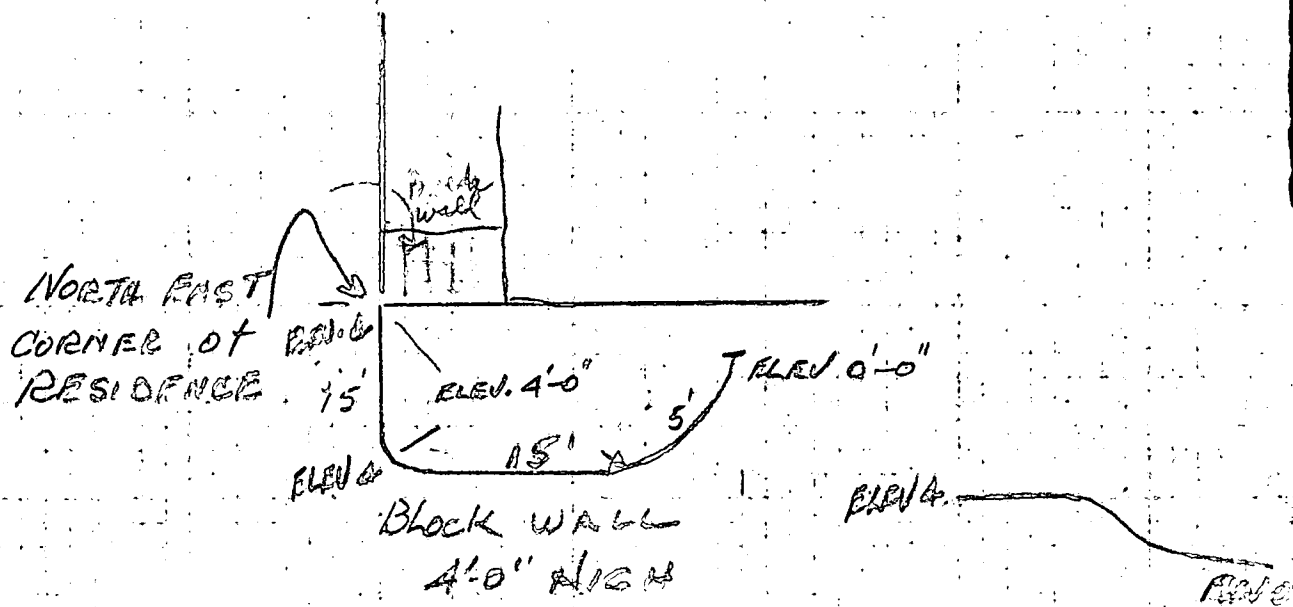 wall
NORTH EAST
CORNER OF
RESIDENCE
15'
ELEV. 4'-0"
ELEV. 0'-0"
5'
15'
ELEV 4
BLOCK WALL
4'-0" HIGH
ELEV 4.
ELEV 0